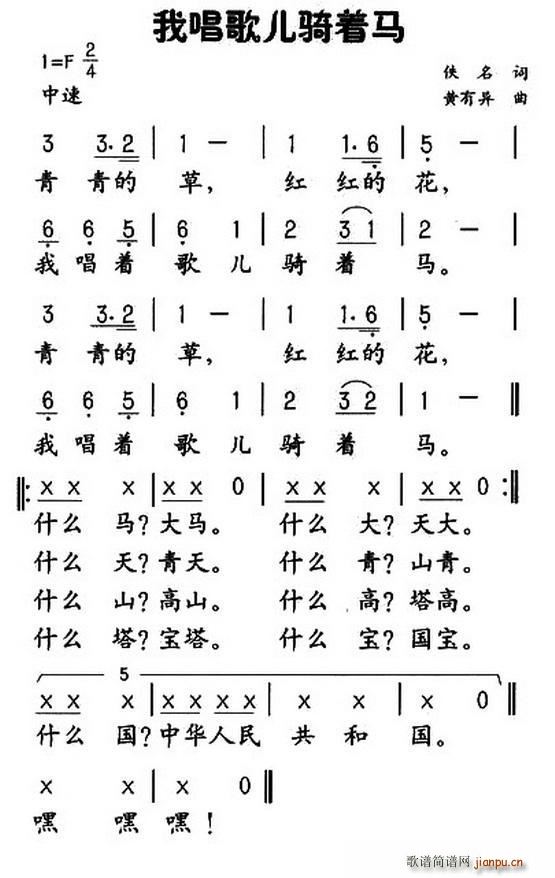 我唱歌儿骑着马
1=F 2/4
佚名 词
中速
黄有异 曲
3 3·2 | 1 — | 1 1·6 | 5 — |
青 青的 草, 红 红的 花,
6 6 5 | 6 1 | 2 3 1 | 2 — |
我 唱 着 歌 儿 骑 着 马。
3 3·2 | 1 — | 1 1·6 | 5 — |
青 青的 草, 红 红的 花,
6 6 5 | 6 1 | 2 3 2 | 1 — ‖
我 唱 着 歌 儿 骑 着 马。
‖: X X X | X X 0 | X X X | X X 0 :‖
什么 马?大马。 什么 大?天大。
什么 天?青天。 什么 青?山青。
什么 山?高山。 什么 高?塔高。
什么 塔?宝塔。 什么 宝?国宝。
5
X X X | X X X X | X X | X 0 |
什么 国?中华人民 共 和 国。
X X | X 0 ‖
嘿 嘿 嘿!
歌谱简谱网 jianpu.cn